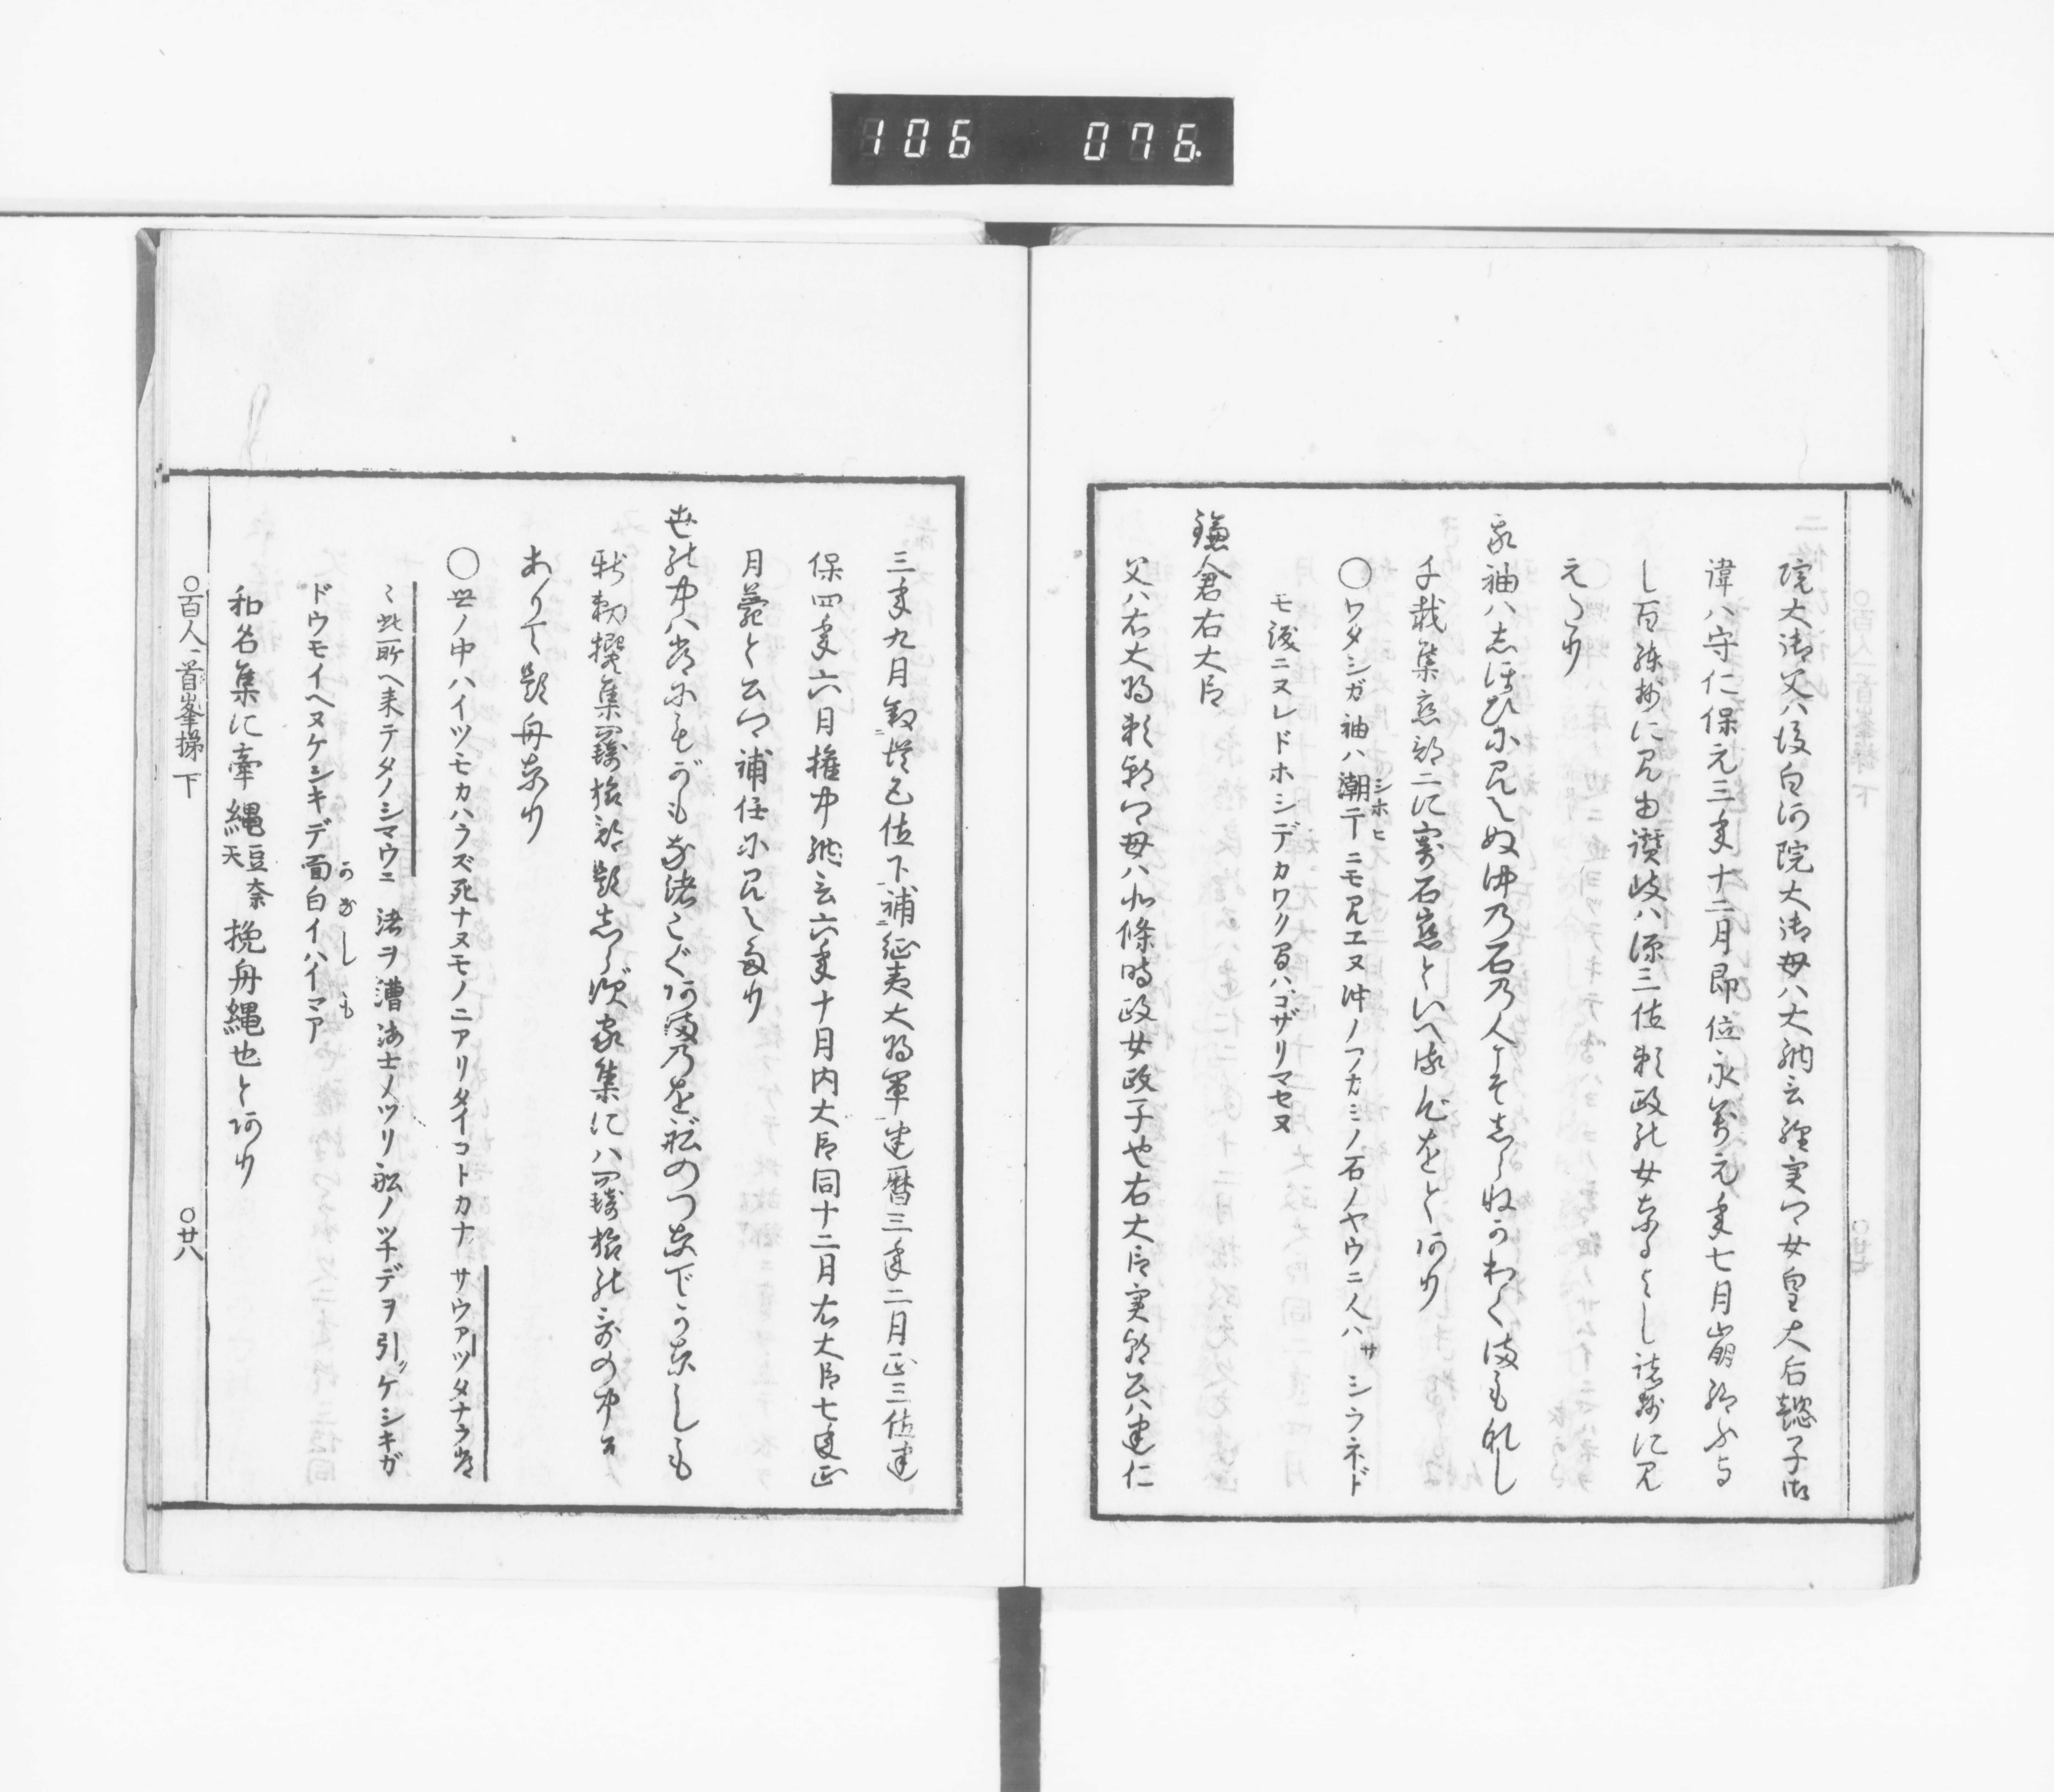 106 076.
院大御父ハ後白河院大御母ハ大納言経実卿女皇太后懿子御
諱ハ守仁保元三年十二月即位永萬元年七月崩給ふよ
し百練抄に見ゆ讃岐ハ源三位頼政の女なるよし諸抄に見
えたり
我袖ハ志ほひに見えぬ沖乃石乃人こそ志らねかわくまもなし
千載集恋部二に寄石恋といへる心をとあり
○ワタシガ袖ハ潮干ニモ見エヌ沖ノフカミノ石ノヤウニ人ハサシラネド
シホヒ
モ涙ニヌレドホシデカワク間ハゴザリマセヌ
鎌倉右大臣
父ハ右大将頼朝卿母ハ北條時政女政子也右大臣実朝公ハ建仁
三年九月叙従五位下補征夷大将軍建暦三年二月正三位建
保四年六月権中納言六年十月内大臣同十二月右大臣七年正
月薨と公卿補任に見えたり
世の中ハ常にもがもな渚こぐあまの
を舩のつなでかなしも
新勅撰集羇旅部題志らず家集にハ羇旅の
ありて題舟なり
○世ノ中ハイツモカハラズ死ナヌモノニアリタイコトカナサウアツタナラ常
ニ此所ヘ来テタノシマウニ渚ヲ漕海士ノツリ舩ノツナデヲ引ケシキガ
ドウモイヘヌケシキデ面白イハイマア
かなしも
和名集に牽縄豆奈天挽舟縄也とあり
○百人一首峯梯 下 ○廿八